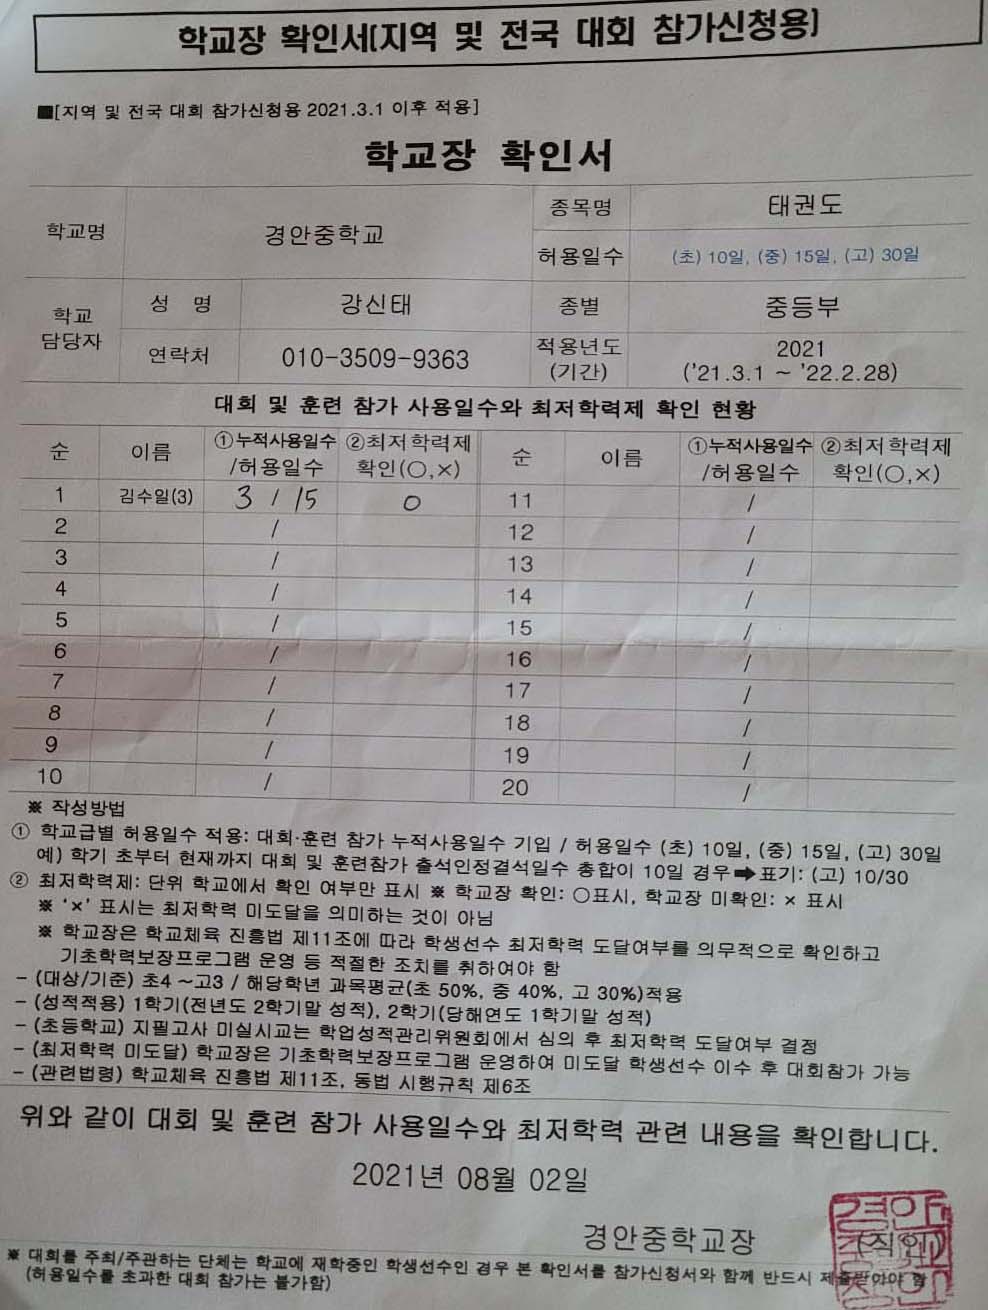 학교장 확인서(지역 및 전국 대회 참가신청용)
■[지역 및 전국 대회 참가신청용 2021.3.1 이후 적용]
학교장 확인서
학교명 경안중학교 종목명 태권도
허용일수 (초) 10일, (중) 15일, (고) 30일
학교 담당자 성 명 강신태 종별 중등부
연락처 010-3509-9363 적용년도 (기간) 2021 ('21.3.1 ~ '22.2.28)
대회 및 훈련 참가 사용일수와 최저학력제 확인 현황
순 이름 ①누적사용일수 /허용일수 ②최저학력제 확인(○,×) 순 이름 ①누적사용일수 /허용일수 ②최저학력제 확인(○,×)
1 김수일(3) 3 / 15 O 11 /
2 / 12 /
3 / 13 /
4 / 14 /
5 / 15 /
6 / 16 /
7 / 17 /
8 / 18 /
9 / 19 /
10 / 20 /
※ 작성방법
① 학교급별 허용일수 적용: 대회·훈련 참가 누적사용일수 기입 / 허용일수 (초) 10일, (중) 15일, (고) 30일
예) 학기 초부터 현재까지 대회 및 훈련참가 출석인정결석일수 총합이 10일 경우➡표기: (고) 10/30
② 최저학력제: 단위 학교에서 확인 여부만 표시 ※ 학교장 확인: ○표시, 학교장 미확인: × 표시
※ '×' 표시는 최저학력 미도달을 의미하는 것이 아님
※ 학교장은 학교체육 진흥법 제11조에 따라 학생선수 최저학력 도달여부를 의무적으로 확인하고
기초학력보장프로그램 운영 등 적절한 조치를 취하여야 함
- (대상/기준) 초4 ~고3 / 해당학년 과목평균(초 50%, 중 40%, 고 30%)적용
- (성적적용) 1학기(전년도 2학기말 성적), 2학기(당해연도 1학기말 성적)
- (초등학교) 지필고사 미실시교는 학업성적관리위원회에서 심의 후 최저학력 도달여부 결정
- (최저학력 미도달) 학교장은 기초학력보장프로그램 운영하여 미도달 학생선수 이수 후 대회참가 가능
- (관련법령) 학교체육 진흥법 제11조, 동법 시행규칙 제6조
위와 같이 대회 및 훈련 참가 사용일수와 최저학력 관련 내용을 확인합니다.
2021년 08월 02일
경안중학교장 (직인)
※ 대회를 주최/주관하는 단체는 학교에 재학중인 학생선수인 경우 본 확인서를 참가신청서와 함께 반드시 제출받아야 함
(허용일수를 초과한 대회 참가는 불가함)